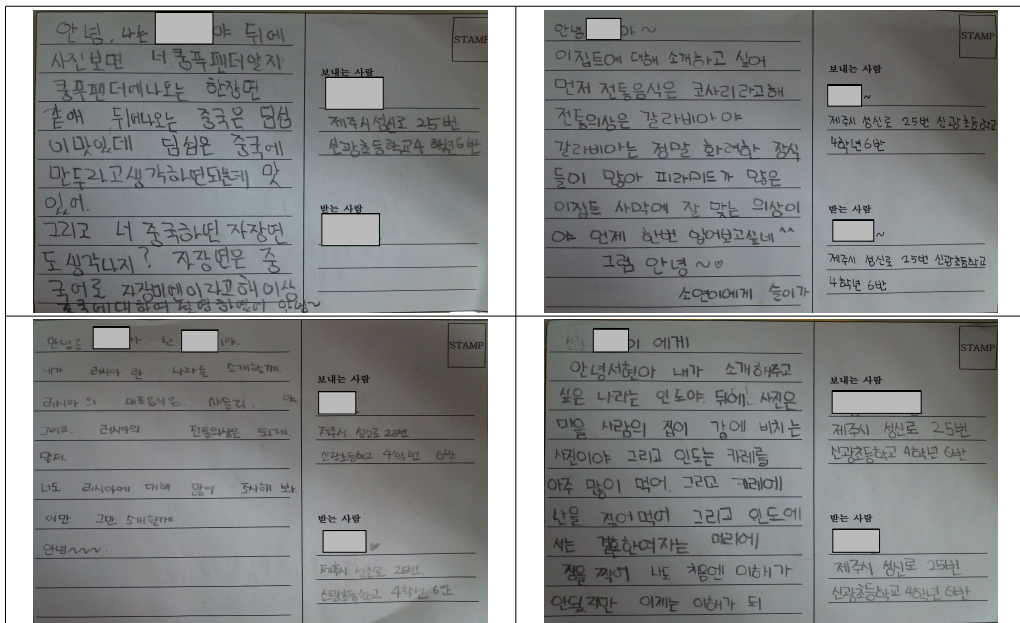 안녕, 나는 야 뒤에
사진보면 너 쿵푸팬더알지
쿵푸팬더에나오는 한장면
같애 뒤에나오는 중국은 딤섬
이맛있데 딤섬은 중국에
만두라고생각하면되는데 맛
있어.
그리고 너 중국하면 자장면
도 생각나지? 자장면은 중
국어로 자장미에이라고해 이상
중국에대하여 설명하였어 안녕~
STAMP
보내는 사람
제주시성신로 25번
신광초등학교4학년6반
받는 사람
안녕 아~
이집트에 대해 소개하고 싶어
먼저 전통음식은 코사리라고해
전통의상은 갈라비아야
갈라비아는 정말 화려한 장식
들이 많아 피라미드가 많은
이집트 사막에 잘 맞는 의상이
야 언제 한번 입어보고싶네^^
그럼 안녕~♡
소연이에게 슬이가
STAMP
보내는 사람
~
제주시 성신로 25번 신광초등학교
4학년6반
받는 사람
~
제주시 성신로 25번 신광초등학교
4학년 6반
안녕 아. 난 야.
내가 러시아 란 나라를 소개할게.
러시아 의 대표음식은. 야
그리고. 러시아의 전통의상은 되게
너도 러시아에 대해 많이 조사해 봐.
이만 그만 소개할게
안녕~~.
STAMP
보내는 사람
제주시 성신로 25번
신광초등학교 4학년 6반
받는 사람
제주시 성신로 25번.
신광초등학교 4학년 6반
이 에게
안녕서현아 내가 소개해주고
싶은 나라는 인도야. 뒤에 사진은
마을 사람의 집이 강에 비치는
사진이야 그리고 인도는 카레를
아주 많이 먹어. 그리고 카레에
난을 찍어먹어 그리고 인도에
서는 결혼한여자는 머리에
점을 찍어 나도 처음엔 이해가
안됬지만 이제는 이해가 되
STAMP
보내는 사람
제주시 성신로 25번
신광초등학교 4학년 6반
받는 사람
제주시 성신로 25번
신광초등학교 4학년 6반